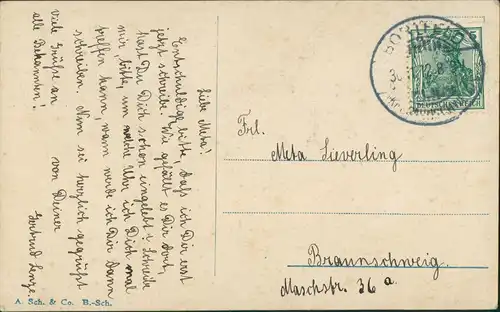 Liebe Meta!
Entschuldige bitte, daß ich Dir erst
jetzt schreibe. Wie gefällt es Dir dort,
hast Du Dich schon eingelebt? Schreibe
mir, bitte, um welche Uhr ich Dich mal
treffen kann, wann werde ich Dir dann
schreiben. Nun sei herzlich gegrüßt
von Deiner
Gertrud Lenze.
Viele Grüße an
alle Bekannten!
Frl.
Meta Sieverling
Braunschweig.
Maschstr. 36 a.
A. Sch. & Co. B.-Sch.